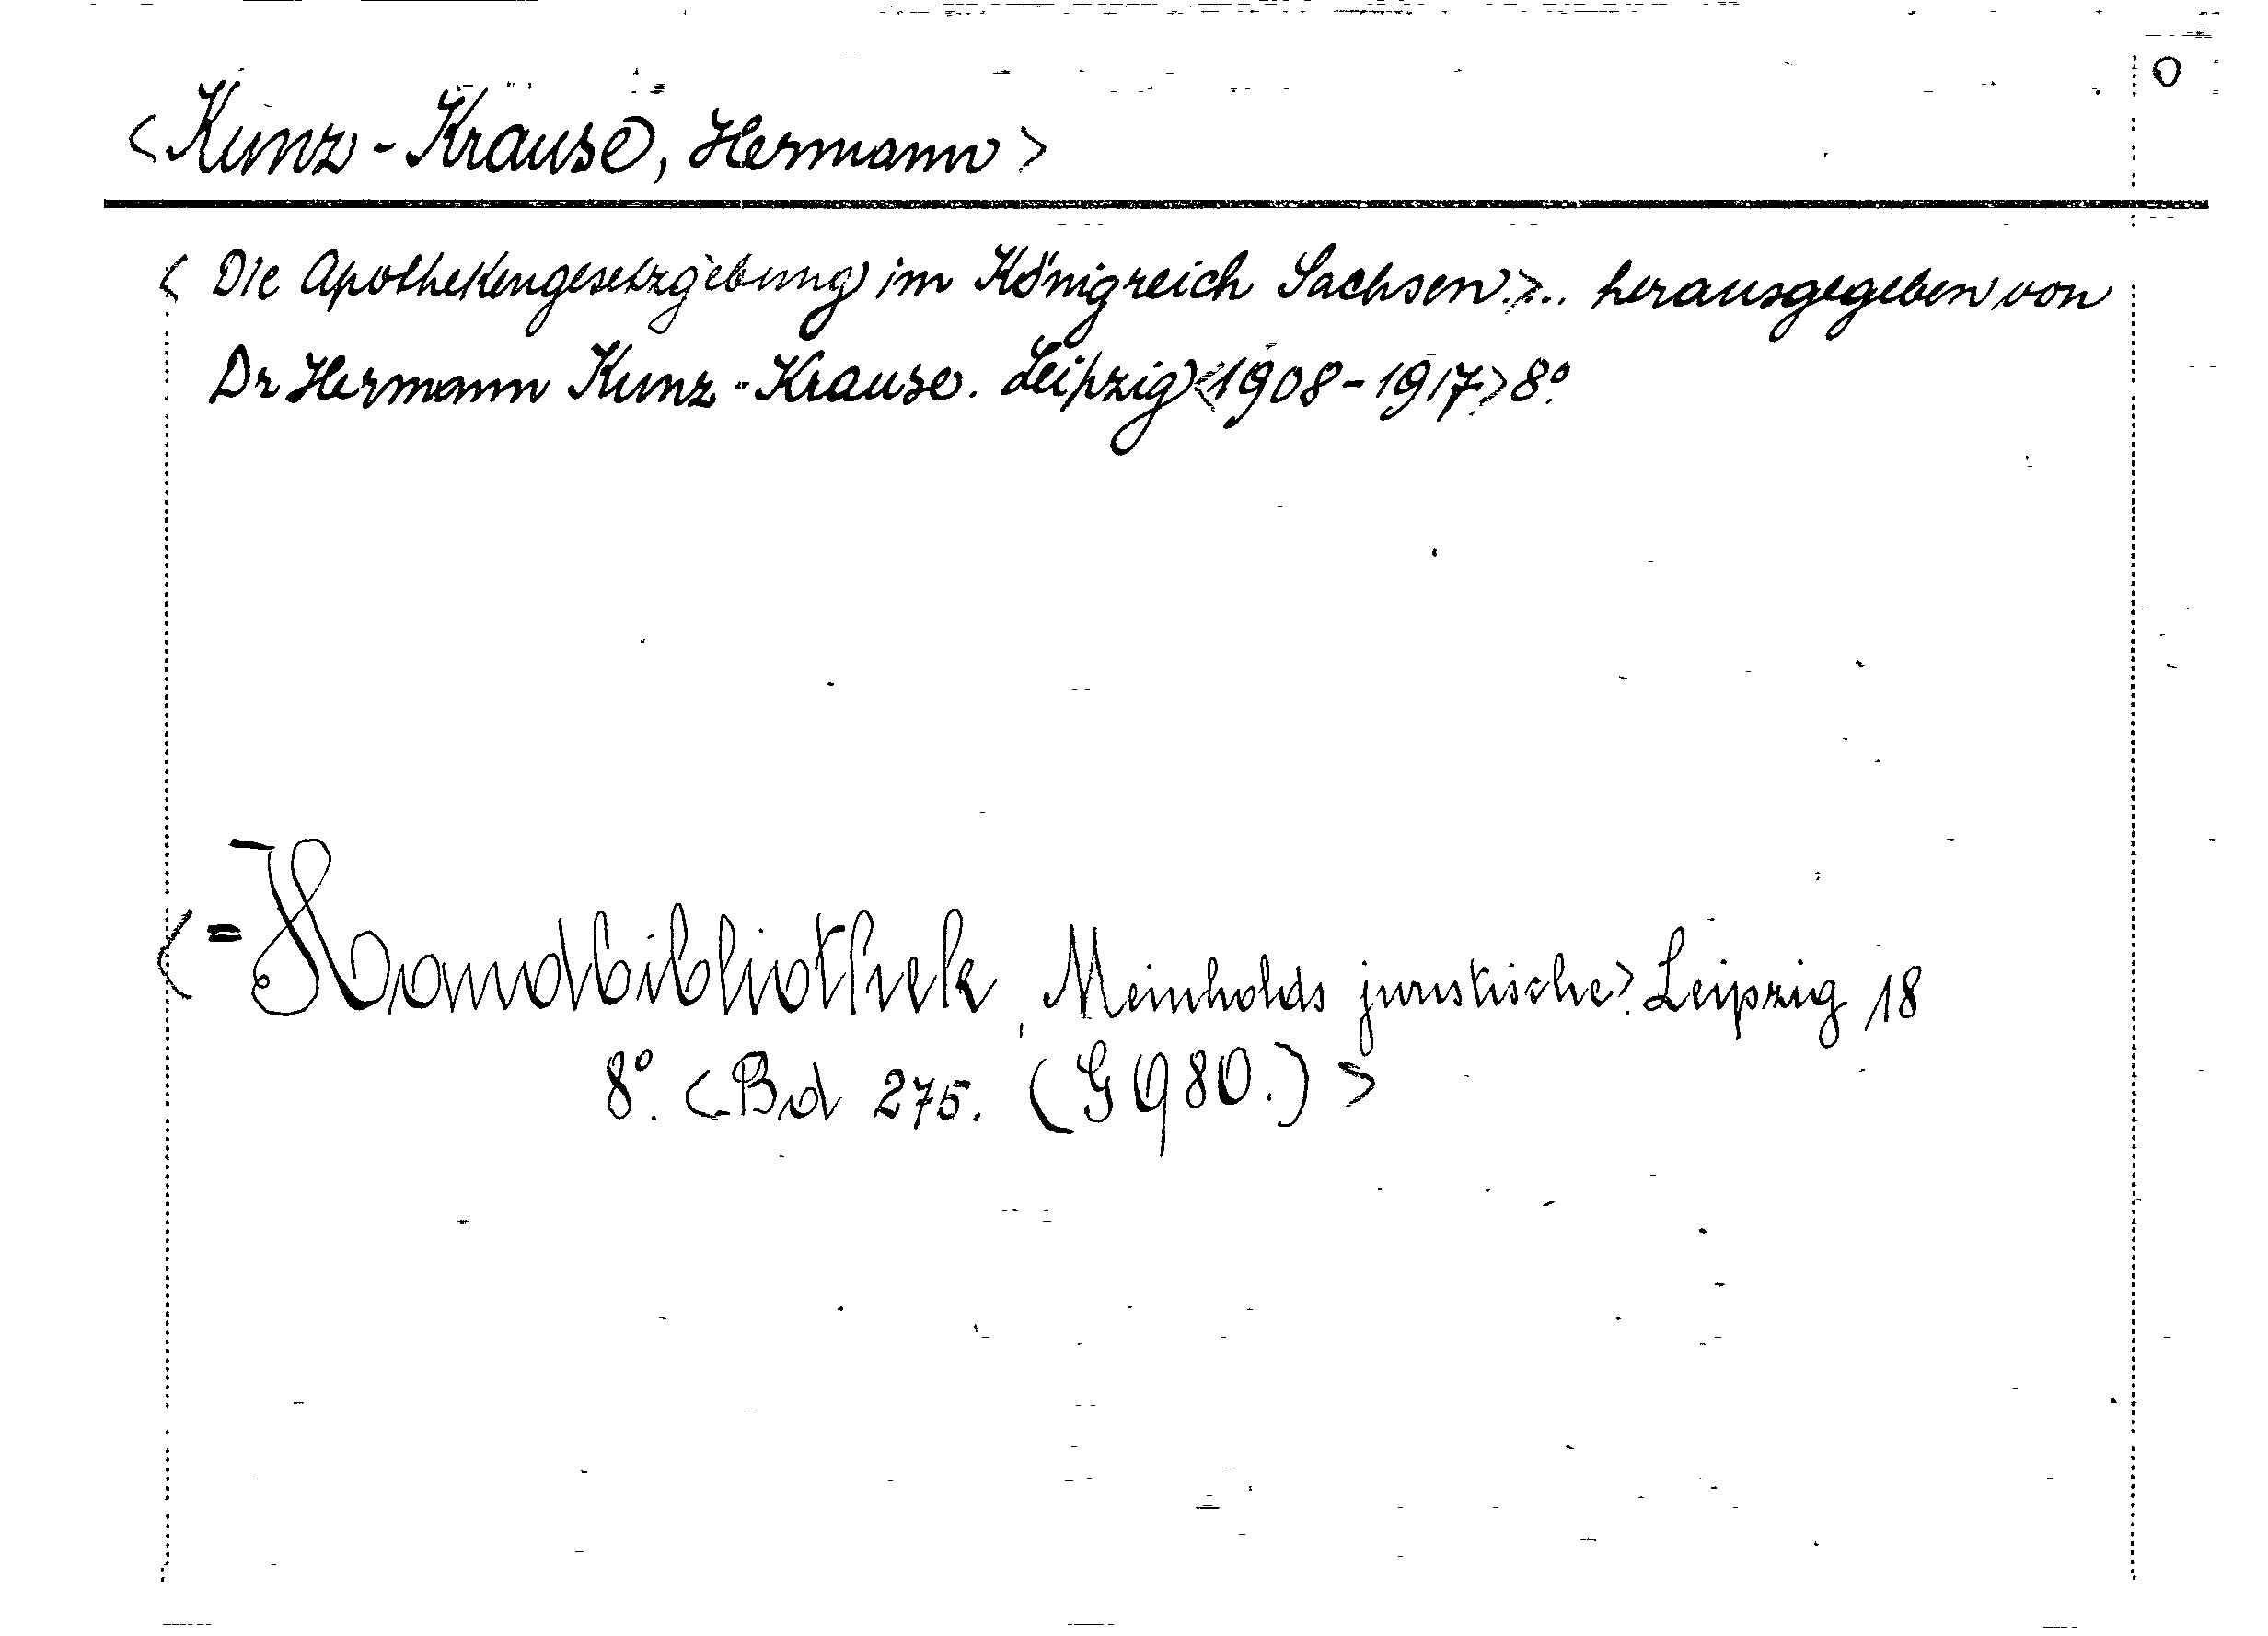 0
<Kunz-Krause, Hermann>
< Die Apothekengesetzgebung im Königreich Sachsen.>.. herausgegeben von
Dr Hermann Kunz-Krause. Leipzig <1908-1917.> 8°.
<= Handbibliothek, Meinholds juristische>. Leipzig 18
8°. <Bd 275. (G 980.) >